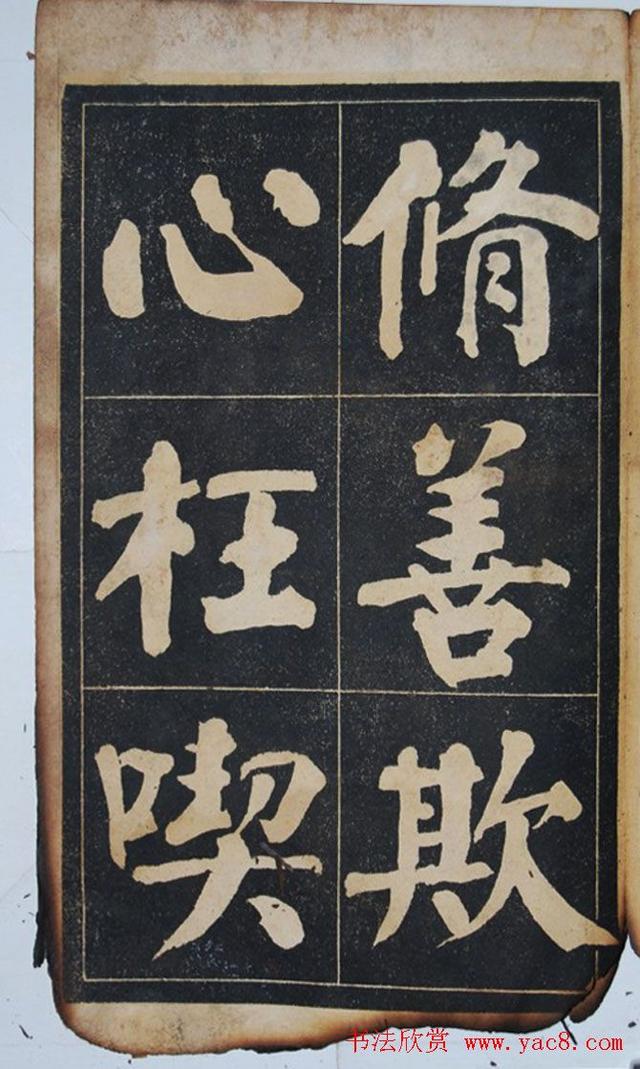 脩善欺
心枉喫
书法欣赏 www.yac8.com